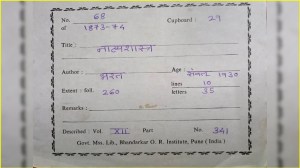 No. 68 Cupboard : 27
of 1873-74
Title : नाट्यशास्त्र
Author : भरत Age : संवत् 1930
Extent : Sol. 260 lines 10
letters 35
Remarks :
Described : Vol. XII Part No. 341
Govt Mss. Lib., Bhandarkar O. R. Institute, Pune ( India ).